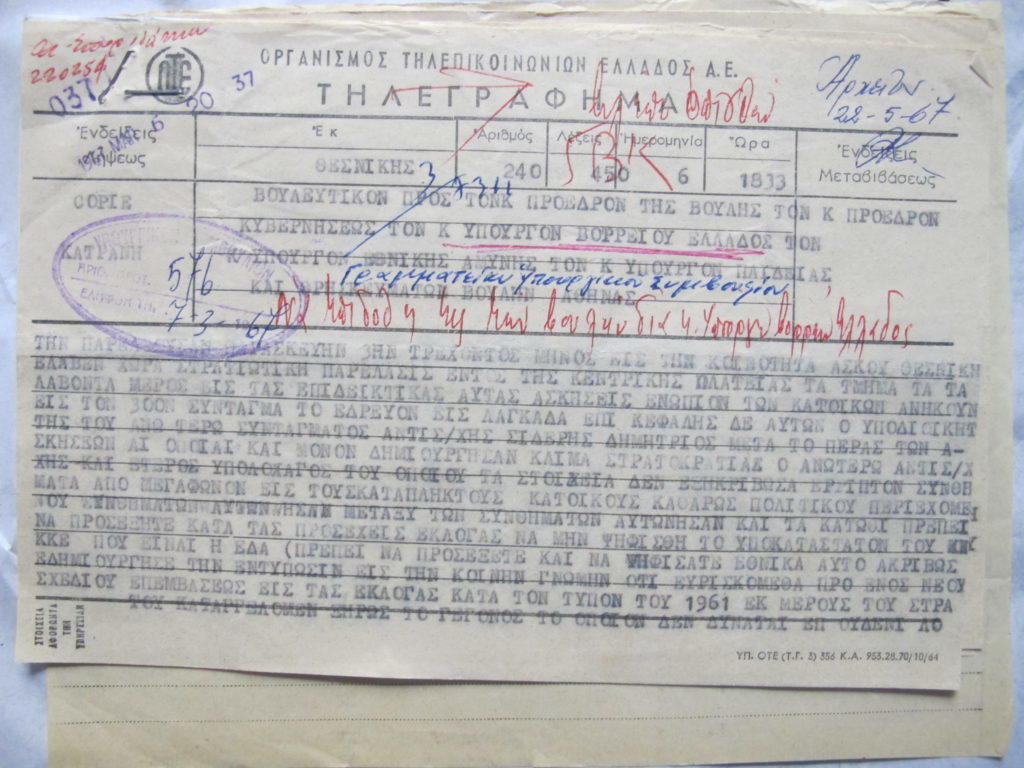 220254
037
ΟΤΕ
50 37
ΟΡΓΑΝΙΣΜΟΣ ΤΗΛΕΠΙΚΟΙΝΩΝΙΩΝ ΕΛΛΑΔΟΣ Α.Ε.
ΤΗΛΕΓΡΑΦΗΜΑ
22-5-67
Ἐνδείξεις
Ἐκ
Ἀριθμός Λέξεις Ἡμερομηνία Ὥρα
Ἐνδείξεις Μεταβιβάσεως
ΘΕΣΝΙΚΗΣ 240 450 6 1833
COPIE
ΒΟΥΛΕΥΤΙΚΟΝ ΠΡΟΣ ΤΟΝΚ ΠΡΟΕΔΡΟΝ ΤΗΣ ΒΟΥΛΗΣ ΤΟΝ Κ ΠΡΟΕΔΡΟΝ
ΚΥΒΕΡΝΗΣΕΩΣ ΤΟΝ Κ ΥΠΟΥΡΓΟΝ ΒΟΡΡΕΙΟΥ ΕΛΛΑΔΟΣ ΤΟΝ
ΚΑΤΡΑΝΗ
Κ ΥΠΟΥΡΓΟΝ ΕΘΝΙΚΗΣ ΑΜΥΝΗΣ ΤΟΝ Κ ΥΠΟΥΡΓΟΝ ΠΑΙΔΕΙΑΣ
576
Γραμματείαν Ὑπουργικοῦ Συμβουλίου
ΚΑΙ ΘΡΗΣΚΕΥΜΑΤΩΝ ΒΟΥΛΗΝ ΑΘΗΝΑΣ
7-3-67
ΤΗΝ ΠΑΡΕΛΘΟΥΣΑΝ ΠΑΡΑΣΚΕΥΗΝ 3ΗΝ ΤΡΕΧΟΝΤΟΣ ΜΗΝΟΣ ΕΙΣ ΤΗΝ ΚΟΙΝΟΤΗΤΑ ΑΣΚΟΥ ΘΕΣΝΙΚΗ
ΕΛΑΒΕΝ ΧΩΡΑ ΣΤΡΑΤΙΩΤΙΚΗ ΠΑΡΕΛΑΣΙΣ ΕΝΤΟΣ ΤΗΣ ΚΕΝΤΡΙΚΗΣ ΠΛΑΤΕΙΑΣ ΤΑ ΤΜΗΜΑ ΤΑ ΤΑ
ΛΑΒΟΝΤΑ ΜΕΡΟΣ ΕΙΣ ΤΑΣ ΕΠΙΔΕΙΚΤΙΚΑΣ ΑΥΤΑΣ ΑΣΚΗΣΕΙΣ ΕΝΩΠΙΟΝ ΤΩΝ ΚΑΤΟΙΚΩΝ ΑΝΗΚΟΥΝ
ΕΙΣ ΤΟΝ 300Ν ΣΥΝΤΑΓΜΑ ΤΟ ΕΔΡΕΥΟΝ ΕΙΣ ΛΑΓΚΑΔΑ ΕΠΙ ΚΕΦΑΛΗΣ ΔΕ ΑΥΤΩΝ Ο ΥΠΟΔΙΟΙΚΗΤ
ΤΗΣ ΤΟΥ ΑΝΩ ΤΕΡΩ ΣΥΝΤΑΓΜΑΤΟΣ ΑΝΤΙΣ/ΧΗΣ ΣΙΔΕΡΗΣ ΔΗΜΗΤΡΙΟΣ ΜΕΤΑ ΤΟ ΠΕΡΑΣ ΤΩΝ Α-
ΣΚΗΣΕΩΝ ΑΙ ΟΠΟΙΑΙ ΚΑΙ ΜΟΝΟΝ ΔΗΜΙΟΥΡΓΗΣΑΝ ΚΛΙΜΑ ΣΤΡΑΤΟΚΡΑΤΙΑΣ Ο ΑΝΩΤΕΡΩ ΑΝΤΙΣ/Χ
ΧΗΣ ΚΑΙ ΕΤΕΡΟΣ ΥΠΟΛΟΧΑΓΟΣ ΤΟΥ ΟΠΟΙΟΥ ΤΑ ΣΤΟΙΧΕΙΑ ΔΕΝ ΕΞΗΚΡΙΒΩΣΑ ΕΡΡΙΠΤΟΝ ΣΥΝΘΗ
ΜΑΤΑ ΑΠΟ ΜΕΓΑΦΩΝΟΝ ΕΙΣ ΤΟΥΣΚΑΤΑΠΛΗΚΤΟΥΣ ΚΑΤΟΙΚΟΥΣ ΚΑΘΑΡΩΣ ΠΟΛΙΤΙΚΟΥ ΠΕΡΙΕΧΟΜΕ
ΝΟΥ ΣΥΝΘΗΜΑΤΩΝ ΑΥΤΩΝΗΣΑΝ ΜΕΤΑΞΥ ΤΩΝ ΣΥΝΘΗΜΑΤΩΝ ΑΥΤΩΝΗΣΑΝ ΚΑΙ ΤΑ ΚΑΤΩΘΙ ΠΡΕΠΕΙ
ΝΑ ΠΡΟΣΕΞΗΤΕ ΚΑΤΑ ΤΑΣ ΠΡΟΣΕΧΕΙΣ ΕΚΛΟΓΑΣ ΝΑ ΜΗΝ ΨΗΦΙΣΘΗ ΤΟ ΥΠΟΚΑΤΑΣΤΑΤΟΝ ΤΟΥ
ΚΚΕ ΠΟΥ ΕΙΝΑΙ Η ΕΔΑ (ΠΡΕΠΕΙ ΝΑ ΠΡΟΣΕΞΕΤΕ ΚΑΙ ΝΑ ΨΗΦΙΣΑΤΕ ΕΘΝΙΚΑ ΑΥΤΟ ΑΚΡΙΒΩΣ
ΕΔΗΜΙΟΥΡΓΗΣΕ ΤΗΝ ΕΝΤΥΠΩΣΙΝ ΕΙΣ ΤΗΝ ΚΟΙΝΗΝ ΓΝΩΜΗΝ ΟΤΙ ΕΥΡΙΣΚΟΜΕΘΑ ΠΡΟ ΕΝΟΣ ΝΕΟΥ
ΣΧΕΔΙΟΥ ΕΠΕΜΒΑΣΕΩΣ ΕΙΣ ΤΑΣ ΕΚΛΟΓΑΣ ΚΑΤΑ ΤΟΝ ΤΥΠΟΝ ΤΟΥ 1961 ΕΚ ΜΕΡΟΥΣ ΤΟΥ ΣΤΡΑ
ΤΟΥ ΚΑΤΑΓΓΕΛΟΜΕΝ ΞΗΡΩΣ ΤΟ ΓΕΓΟΝΟΣ ΤΟ ΟΠΟΙΟΝ ΔΕΝ ΔΥΝΑΤΑΙ ΕΠ ΟΥΔΕΝΙ ΛΟ
ΣΤΟΙΧΕΙΑ ΑΦΟΡΩΝΤΑ ΤΗΝ ΥΠΗΡΕΣΙΑΝ
ΥΠ. ΟΤΕ (Τ.Γ. 3) 356 Κ.Α. 953.28.70/10/64